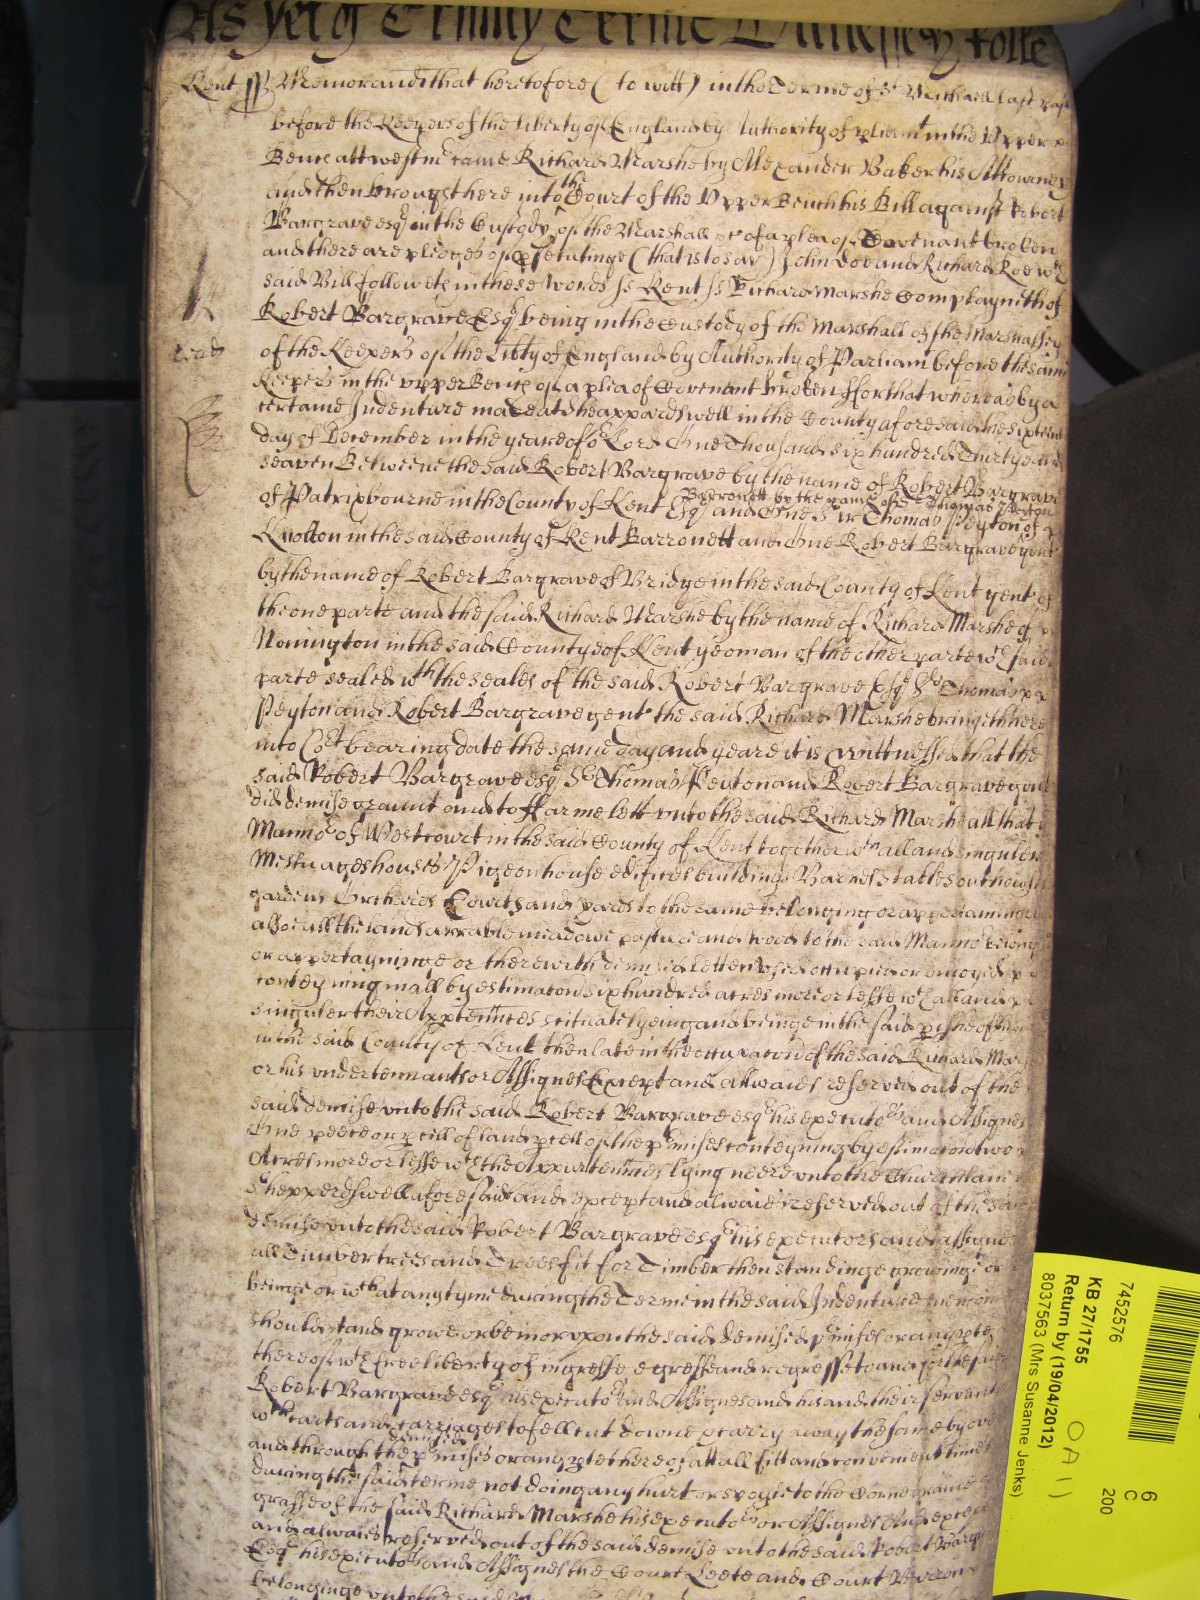 As yet of Trinity Terme Wittnesse H Rolle
Kent ss Memorand that heretofore (to witt) in the Terme of St Michaell last past
before the Keepers of the liberty of England by Authority of pliamt in the Upper
Bence att westmr came Richard Marshe by Alexander Baker his Attourney
and then brought here into the Court of the Upper Bench his Bill against Robert
Bargrave esqr in the Custody of the Marshall &c of a plea of Covenant broken
and there are pledges of psecutinge (that is to say) John Doe and Richard Roe wch
said Bill followeth in these words ss Kent ss Richard Marshe Complayneth of
Robert Bargrave Esqr being in the Custody of the Marshall of the Marshalsey
of the Keepers of the Libty of England by Authority of Parliamt before the same
Keepers in the upper Bence of a plea of Covenant broken ffor that whereas by a
certaine Indenture made att Sheappardswell in the County aforesaid the sixteen
day of December in the yeare of or Lord One Thousand six hundred Thirty and
seaven Betweene the said Robert Bargrave by the name of Robert Bargrave
Barronett by the name of Sr Thomas Peyton
of Patrixbourne in the County of Kent Esqr and One Sir Thomas Peyton of
Knolton in the said County of Kent Barronett and One Robert Bargrave gent
by the name of Robert Bargrave of Bridge in the said County of Kent gent of
the one parte and the said Richard Marshe by the name of Richard Marshe of
Nonington in the said County of Kent yeoman of the other parte wch said
parte sealed wth the seales of the said Robert Bargrave Esqr Sr Thomas
Peyton and Robert Bargrave gent the said Richard Marshe bringeth here
into Cort bearing date the same day and yeare it is wittnessed that the
said Robert Bargrave esqr Sr Thomas Peyton and Robert Bargrave gent
did demise graunt and to ffarme lett unto the said Richard Marsh all that
Mannor of Westcourt in the said County of Kent together wth all and singuler
Messuages houses Pigeonhouse edifices buildings Barnes stables outhouses
gardens Orchards Courts and yards to the same belonging or appertaininge
also all the lands arrable meadowe pasture and wood to the said Mannor belong
or appertayninge or therewith demised letten used occupied or enioyed
conteyning in all by estimacon six hundred acres more or lesse wch all and
singuler their Apptennces scituate lyeing and beinge in the said pishe of
in the said County of Kent then late in the occupacon of the said Richard Mar
or his undertennants or Assignes Except and allwaies reserved out of the
said demise unto the said Robert Bargrave esqr his executors and Assignes
One peece or pcell of land pcell of the pmises conteyning by estimacon two
Acres more or lesse wth the Appurtennces lying neere unto the Churchlane
Shepperdswell aforesaid and except and alwaies reserved out of the said
demise unto the said Robert Bargrave esqr his executors and assignes
all Timber trees and Trees fit for Timber then standinge growinge or
beinge or wch at any tyme during the Terme in the said Indenture mencon
should stand growe or be in or upon the said demised pmises or any pte
thereof wth free liberty of ingresse egresse and regresse to and for the said
Robert Bargrave esqr his executors and Assignes and his and their servants
wth carts and carriages to fell cut downe & carry away the same by over
demised
and through the pmises or any pte thereof att all fitt and convenient times
during the said terme not doing any hurt or spoyle to the Corne graine
grasse of the said Richard Marshe his executors or Assignes And except
and alwaies reserved out of the said demise unto the said Robert Bargr
Esqr his executors and Assignes the Court Leete and Court Barron
belonginge unto the said
7452576
KB 27/1755
Return by (19/04/2012)
8037563 (Mrs Susanne Jenks)
6
C
200